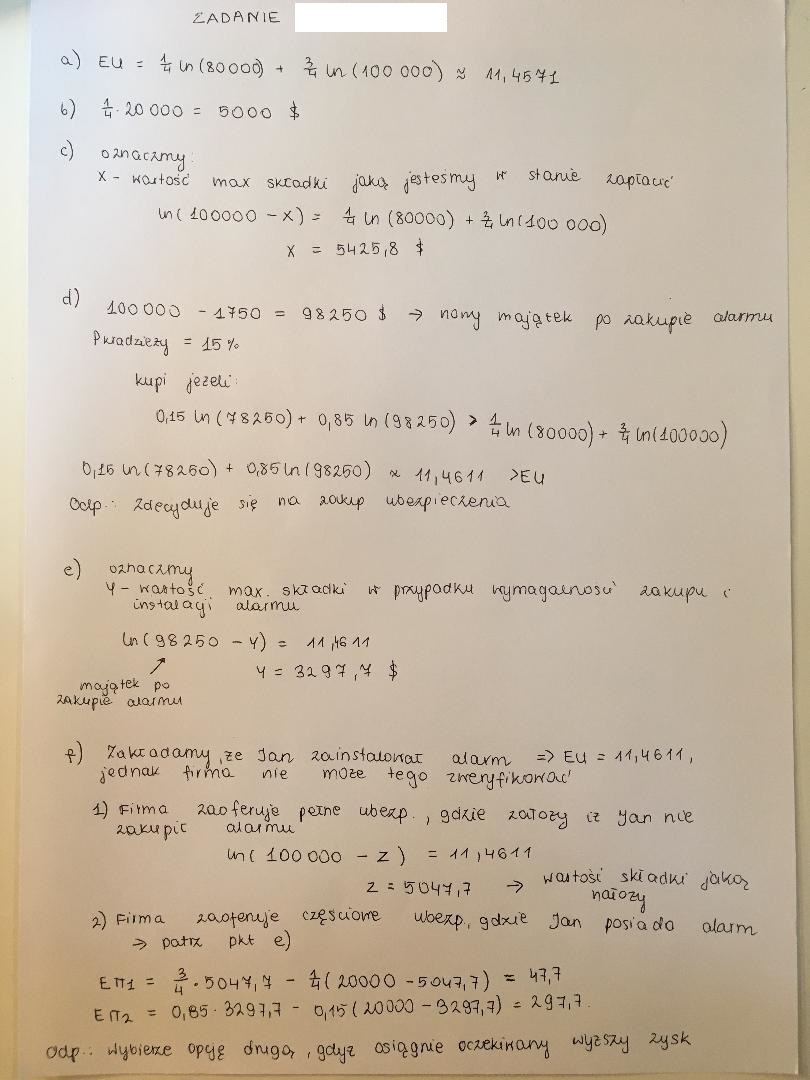 ZADANIE
a) EU = 1/4 ln(80000) + 3/4 ln(100 000) ≈ 11,4571
b) 1/4 · 20 000 = 5000 $
c) oznaczmy:
X - wartość max składki jaką jesteśmy w stanie zapłacić
ln(100000 - X) = 1/4 ln(80000) + 3/4 ln(100 000)
X = 5425,8 $
d) 100 000 - 1750 = 98250 $ → nowy majątek po zakupie alarmu
Pkradzieży = 15%
kupi jeżeli:
0,15 ln(78250) + 0,85 ln(98250) > 1/4 ln(80000) + 3/4 ln(100000)
0,15 ln(78250) + 0,85 ln(98250) ≈ 11,4611 > EU
Odp.: Zdecyduje się na zakup ubezpieczenia
e) oznaczmy
Y - wartość max. składki w przypadku wymagalności zakupu i
instalacji alarmu
ln(98250 - Y) = 11,4611
Y = 3297,7 $
majątek po
zakupie alarmu
f) Zakładamy, że Jan zainstalował alarm => EU = 11,4611,
jednak firma nie może tego zweryfikować
1) Firma zaoferuje pełne ubezp., gdzie założy iż Jan nie
zakupił alarmu
ln(100 000 - Z) = 11,4611
Z = 5047,7 → wartość składki jaką
nałoży
2) Firma zaoferuje częściowe ubezp., gdzie Jan posiada alarm
→ patrz pkt e)
Eπ1 = 3/4 · 5047,7 - 1/4 (20000 - 5047,7) = 47,7
Eπ2 = 0,85 · 3297,7 - 0,15 (20000 - 3297,7) = 297,7.
Odp.: Wybierze opcję drugą, gdyż osiągnie oczekiwany wyższy zysk